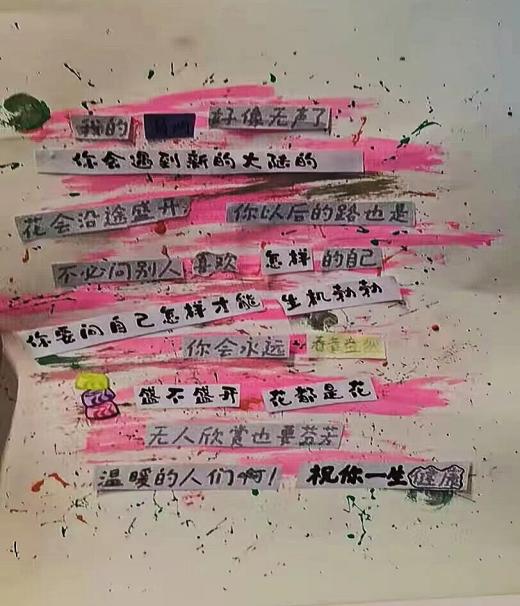 我的 好像无声了
你会遇到新的大陆的
花会沿途盛开 你以后的路也是
不必问别人喜欢怎样的自己
你要问自己怎样才能生机勃勃
你会永远
盛不盛开 花都是花
无人欣赏也要芬芳
温暖的人们啊！ 祝你一生健康